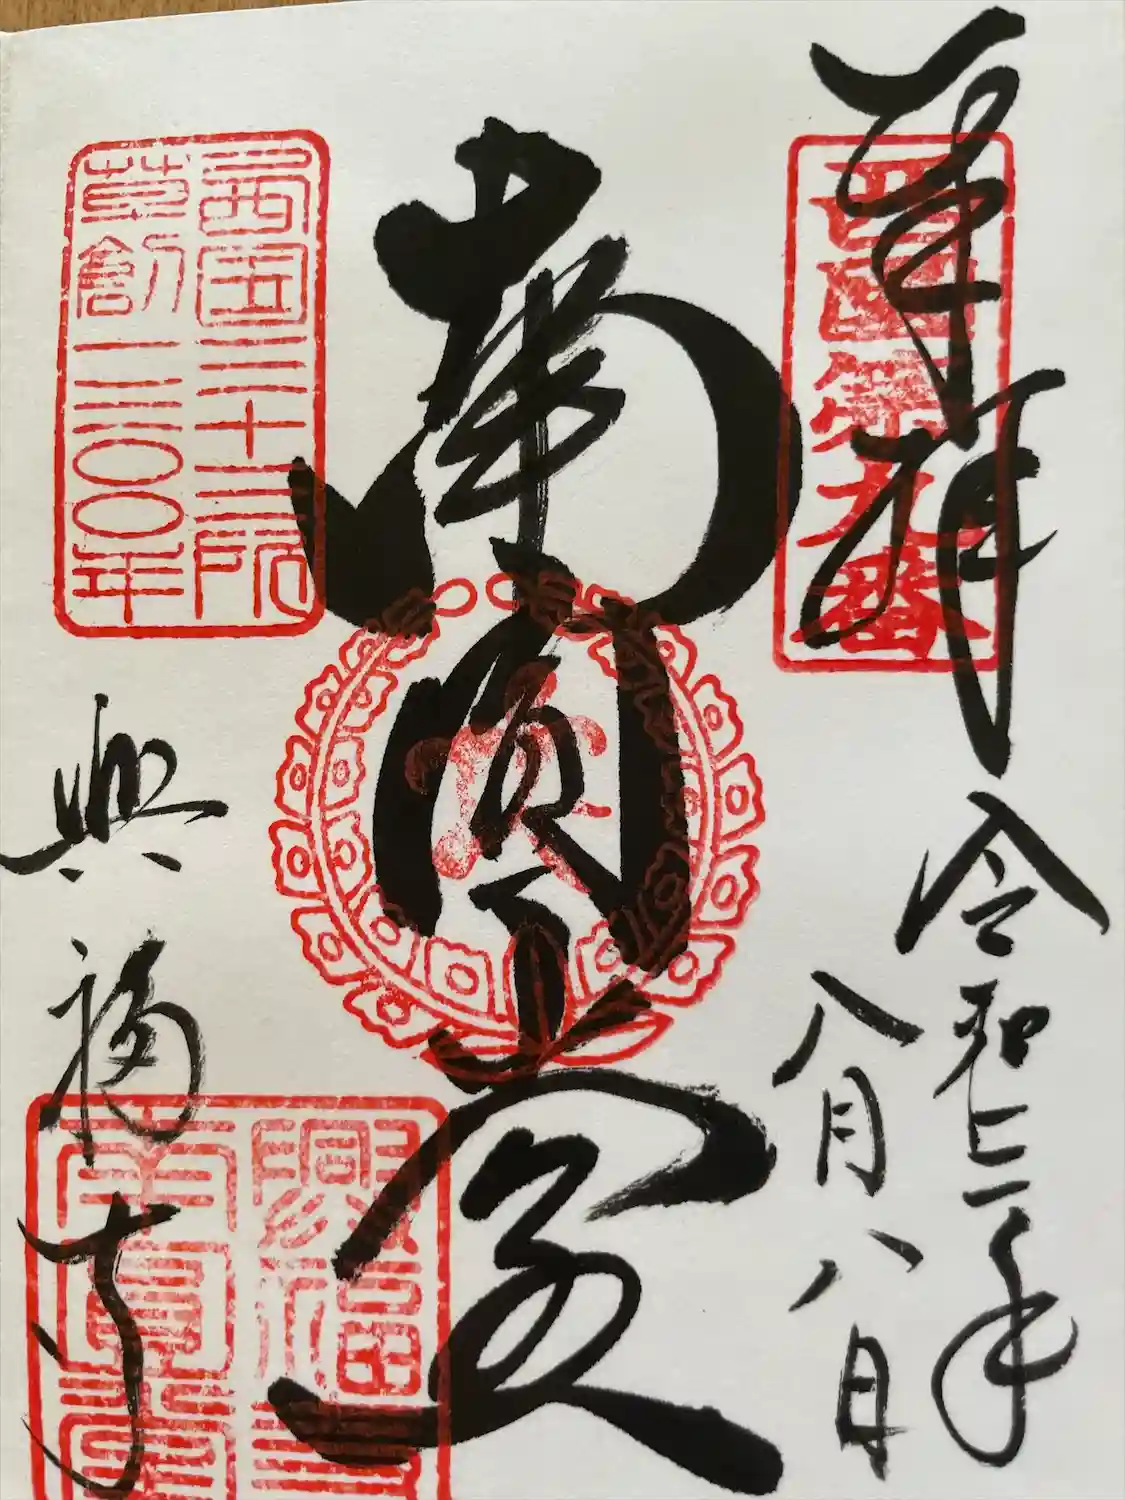 奉拝
西国第九番
令和三年
八月八日
南圓堂
西国三十三所
草創一三〇〇年
興福寺
興福寺
南圓堂